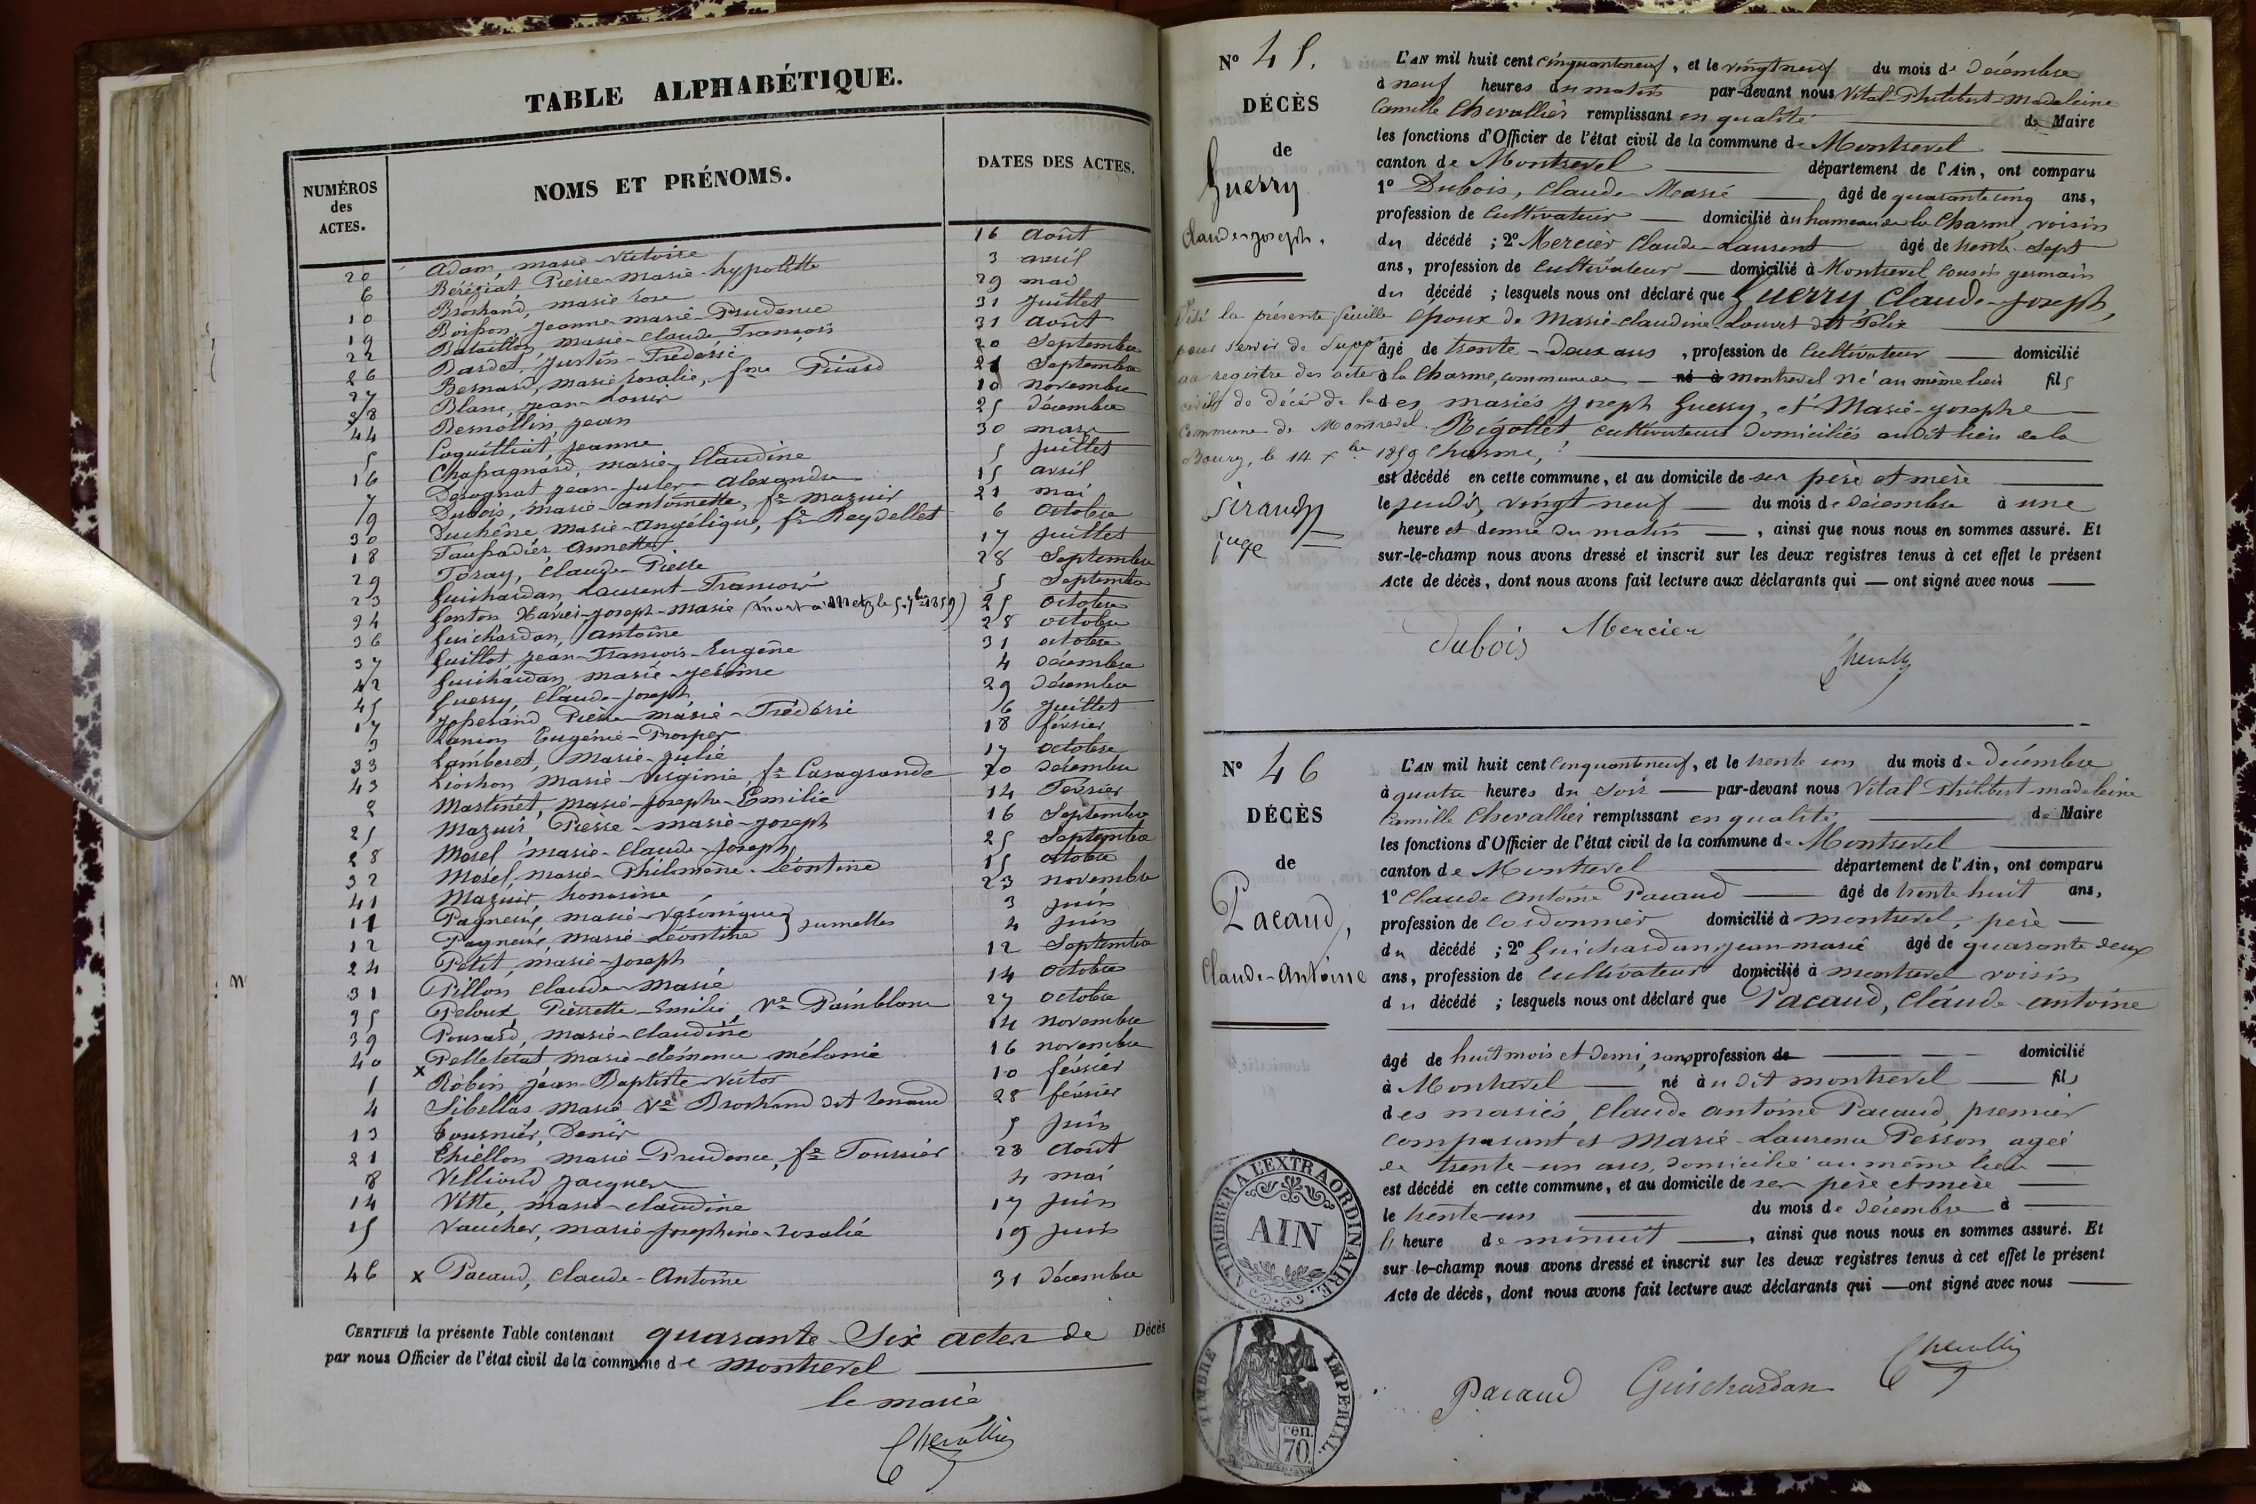 TABLE ALPHABÉTIQUE.
NUMÉROS des ACTES. NOMS ET PRÉNOMS. DATES DES ACTES.
20 Adam, marie Victoire 16 août
6 Béréziat Pierre-Marie-hypolitte 3 avril
10 Brochand, marie rose 29 mai
19 Boisson, Jeanne-marie-Prudence 31 Juillet
22 Bataillon, marie-Claude-François 31 août
26 Bardet, Justin-Frédéric 20 Septembre
27 Bernard, marie rosalie, fme Picard 21 Septembre
38 Blanc, jean-Louis 10 novembre
44 Bernollin jean 25 décembre
5 Coquilliat, Jeanne 30 mars
16 Chapagnard, marie, Claudine 5 Juillet
7 Desognat jean-Jules-alexandre 15 avril
9 Dubois, marie-antoinette, fe Mazuir 21 mai
30 Duchêne marie-angélique, fe Reydellet 6 octobre
18 Faussadier, annette 17 juillet
29 Foray, Claude-Pierre 28 Septembre
23 Guichardan Laurent-François 5 Septembre
34 Gonton Xavier-Joseph-Marie (mort à Metz le 5. 7bre 1859) 25 octobre
36 Guichardan, antoine 28 octobre
37 Guillot jean-François-Eugène 31 octobre
42 Guichardan marie-jérôme 4 décembre
45 Guerry, Claude-joseph 29 décembre
17 Josserand Pierre-Marie-Frédéric 6 juillet
3 Lanion Eugénie-Prosper 18 février
33 Lamberet, Marie-Julie 17 octobre
43 Liochon marie-virginie, fe Casagrande 20 décembre
2 Martinet, marie-Josephe-Emilie 14 Février
25 Mazuir Pierre-marie-joseph 16 Septembre
28 Morel marie-Claude-Joseph 25 Septembre
32 Morel marie-Philomène-Léontine 15 octobre
41 Mazuir, honorine 23 novembre
11 Pagneux, marie-Véronique } jumelles 3 juin
12 Pagneux, marie-Léontine 4 juin
24 Petit, marie-joseph 12 Septembre
31 Pillon, Claude-Marie 14 octobre
35 Peloux, Pierrette-Emilie, Ve Painblanc 27 octobre
39 Ponsard, marie-Claudine 14 novembre
40 x Pelletétat, marie-clémence mélanie 16 novembre
1 Robin, jean-Baptiste-Victor 10 février
4 Sibellas, marie Ve Brochand dit renaud 28 février
13 Tournier, Denis 5 juin
21 Thiellon marie-Prudence, fe Tournier 23 août
8 Velliond jacques 4 mai
14 Vitte, marie-claudine 17 juin
15 Vaucher, marie-josephine-rosalie 19 juin
46 x Pacaud, Claude-Antoine 31 décembre
CERTIFIÉ la présente Table contenant quarante Six actes de Décès
par nous Officier de l'état civil de la commune de Montrevel
le maire
Chevallier
N° 45.
DÉCÈS
de
Guerry
Claude-joseph.
Visé la présente feuille
pour servir de supp.t
au registre des actes
civils de décès de la
Commune de Montrevel.
Bourg, le 14 xbre 1859
Siraudy
juge
L'AN mil huit cent cinquanteneuf, et le vingt neuf du mois de Décembre
à neuf heures du matin par-devant nous Vital-Philibert-Madeleine
Camille Chevallier remplissant en qualité de Maire
les fonctions d'Officier de l'état civil de la commune de Montrevel
canton de Montrevel département de l'Ain, ont comparu
1° Dubois, Claude-Marie âgé de quarante cinq ans,
profession de Cultivateur domicilié au hameau de la Charme, voisin
du décédé ; 2° Mercier Claude-Laurent âgé de trente-sept
ans, profession de cultivateur domicilié à Montrevel cousin germain
du décédé ; lesquels nous ont déclaré que Guerry Claude-Joseph,
époux de Marie-claudine Louvet dit Félix
âgé de trente-deux ans, profession de Cultivateur domicilié
à la Charme, commune de né à montrevel né au même lieu fils
des mariés Joseph Guerry, et Marie-Josephe
Rigollet cultivateurs domiciliés audit lieu de la
Charme,
est décédé en cette commune, et au domicile de ses père et mère
le jeudi, vingt-neuf du mois de décembre à une
heure et demie du matin, ainsi que nous nous en sommes assuré. Et
sur-le-champ nous avons dressé et inscrit sur les deux registres tenus à cet effet le présent
Acte de décès, dont nous avons fait lecture aux déclarants qui ont signé avec nous
Dubois Mercier
Chevallier
N° 46
DÉCÈS
de
Pacaud,
Claude-Antoine
L'AN mil huit cent cinquanteneuf, et le trente un du mois de Décembre
à quatre heures du soir par-devant nous Vital-Philibert-madeleine
Camille Chevallier remplissant en qualité de Maire
les fonctions d'Officier de l'état civil de la commune de Montrevel
canton de Montrevel département de l'Ain, ont comparu
1° Claude Antoine Pacaud âgé de trente huit ans,
profession de Cordonnier domicilié à montrevel, père
du décédé ; 2° Guichardan jean-marie âgé de quarante deux
ans, profession de cultivateur domicilié à montrevel voisin
du décédé ; lesquels nous ont déclaré que Pacaud, Claude-antoine
âgé de huit mois et demi, sans profession de domicilié
à Montrevel né audit montrevel fils
des mariés, Claude antoine Pacaud, premier
comparant et Marie-Laurence Perron, agée
de trente-un ans, domiciliés au même lieu
est décédé en cette commune, et au domicile de ses père et mère
le trente-un du mois de Décembre à
l' heure de minuit, ainsi que nous nous en sommes assuré. Et
sur-le-champ nous avons dressé et inscrit sur les deux registres tenus à cet effet le présent
Acte de décès, dont nous avons fait lecture aux déclarants qui ont signé avec nous
Chevallier
Pacaud Guichardan
TIMBRER A L'EXTRAORDINAIRE
AIN
TIMBRE IMPERIAL.
cen.
70.